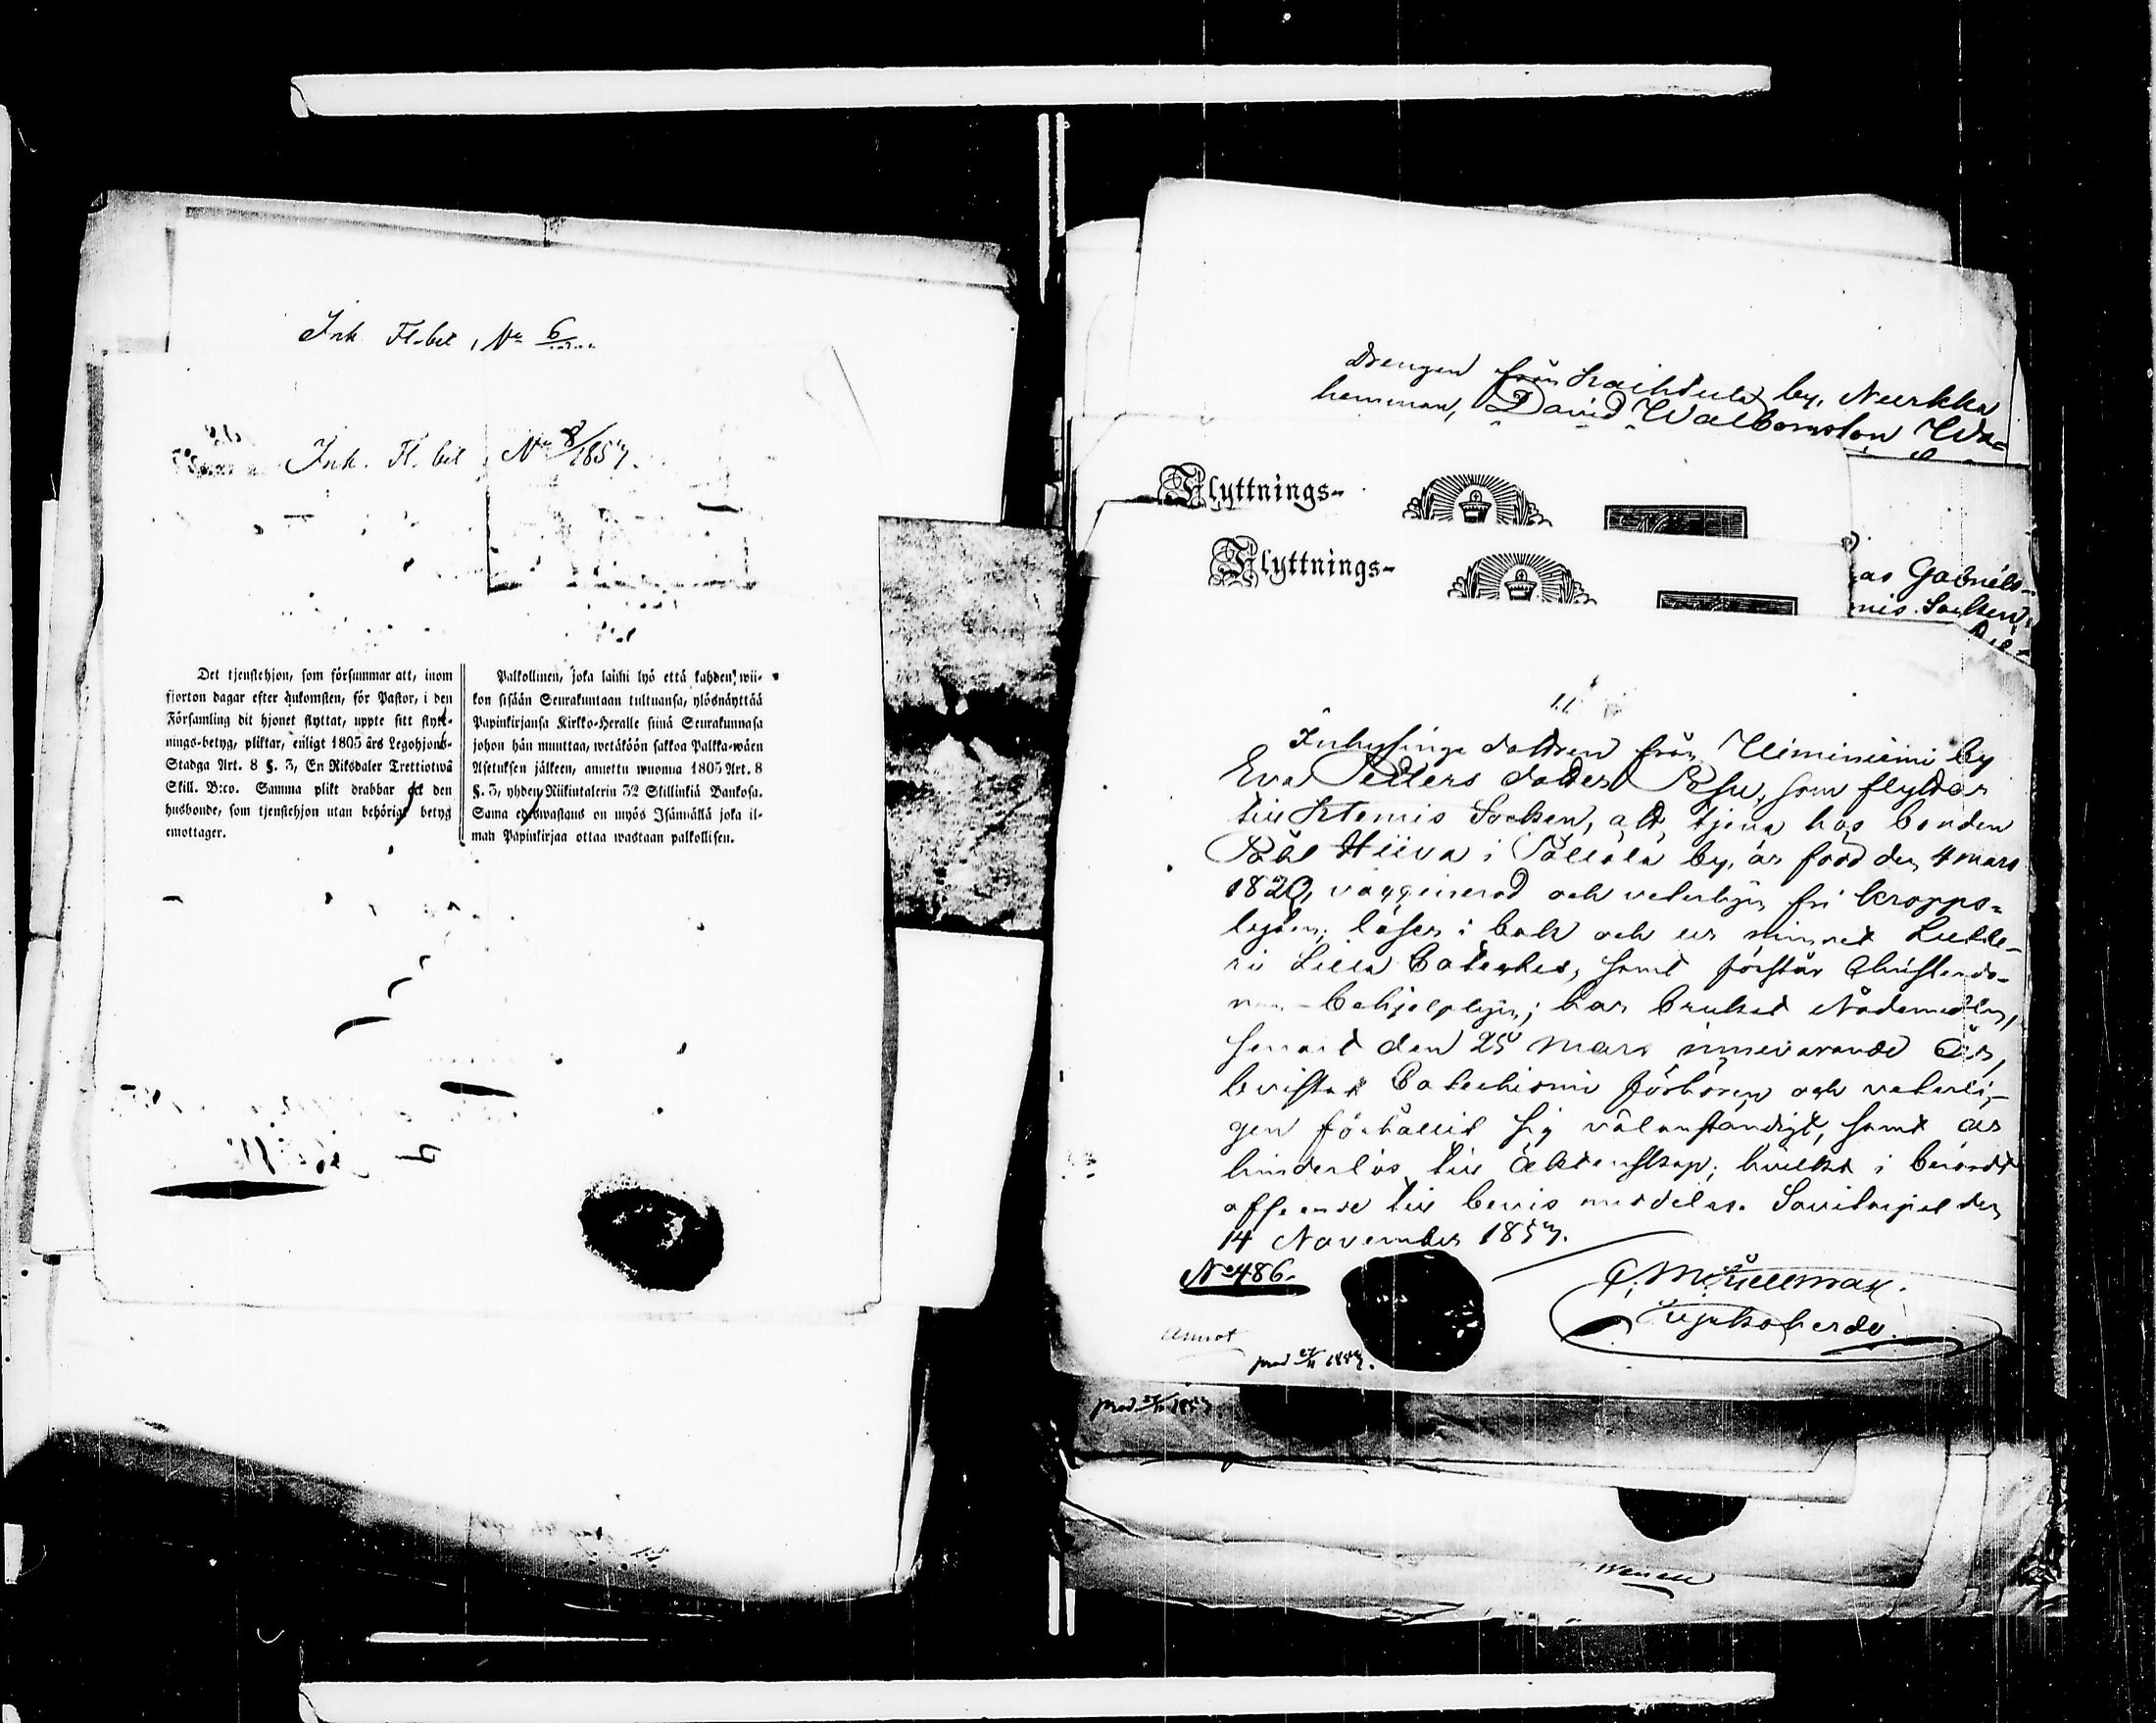 Ink Fl. bet, No 6
Ink. Fl. bet No 8/1857.
Det tjenstehjon, som försummar att, inom
fjorton dagar efter ankomsten, för Pastor, i den
Församling dit hjonet flyttat, uppte sitt flytt-
nings-betyg, pliktar, enligt 1805 års Legohjons-
Stadga Art. 8 §. 3, En Riksdaler Trettiotwå
Skill. B:co. Samma plikt drabbar ock den
husbonde, som tjenstehjon utan behörigt betyg
emottager.
Palkollinen, joka laiki lyö että kahden wii-
kon sisään Seurakuntaan tultuansa, ylösnäyttää
Papinkirjansa Kirkko-Heralle siinä Seurakunnasa
johon hän muuttaa, wetäköön sakkoa Palkka-wäen
Asetuksen jälkeen, annettu wuonna 1805 Art. 8
§. 3, yhden Riikintalerin 32 Skillinkiä Bankosa.
Sama edeswastaus on myös Isännällä joka il-
man Papinkirjaa ottaa wastaan palkollisen.
Drengen från by, Nurkka
hemman, David Walbomston Wa-
Flyttnings-
Flyttnings-
as Gabriels-
mis Socken
Inhysinge dottren från Uiminiemi by
Eva Petters dotter Pesu, som flyttar
till Itemis Socken, att tjena hos bonden
Påhl Hiiva i Pällälä by, är född den 4 mars
1820, vaccinerad och veterligen fri kropps-
lyten; läser i bok och ur minnet Luthe-
ri Lilla Cateches, samt förstår Christendo-
men behjelpligen; har brukat Nådemedlen,
senast den 25 Mars innevarande år,
bevistat Catechismi förhören och veterli-
gen förhållit sig välanständigt, samt är
hinderlös till äktenskap; hvilket i berördt
afseende till bevis meddelas. Savitaipal den
14 November 1857.
No 486.
Annot
prod 27/11 1857.
prod 27/11 1857